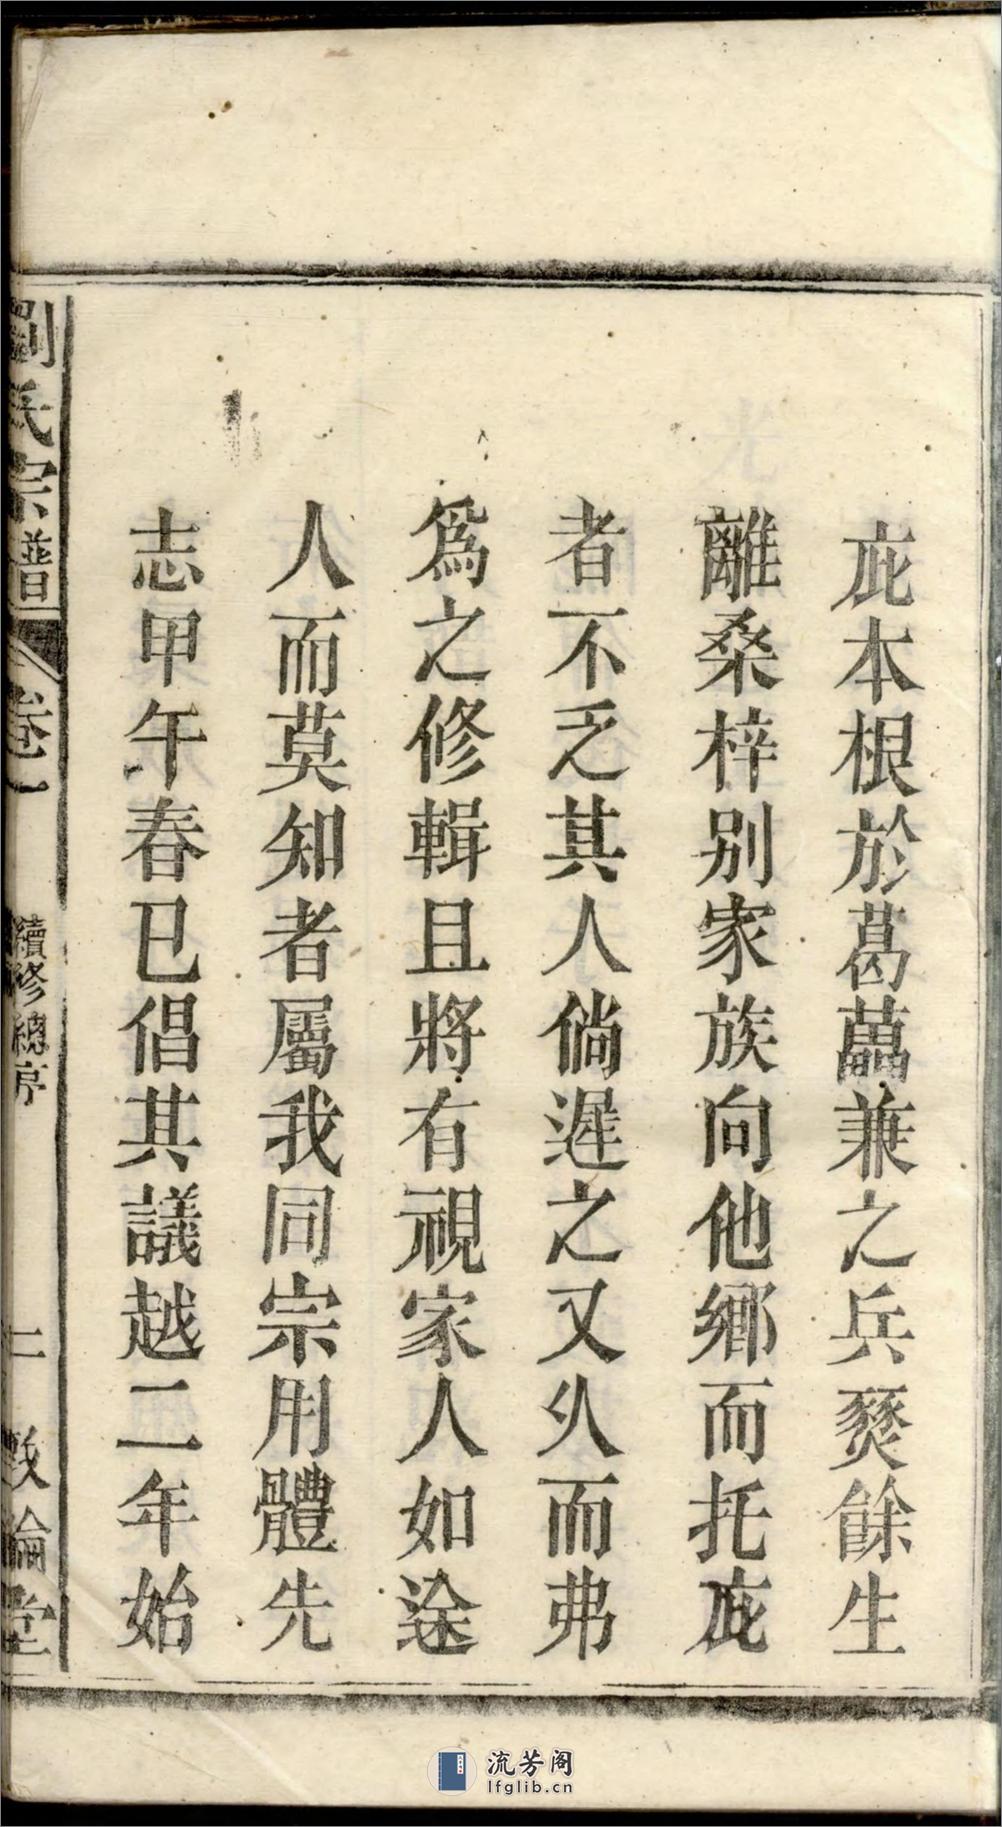 庇本根於葛藟兼之兵燹餘生
離桑梓别家族向他鄉而托庇
者不乏其人倘遲之又久而弗
爲之修輯且將有視家人如途
人而莫知者屬我同宗用體先
志甲午春已倡其議越二年始
劉氏宗譜 卷一 續修總序 二 敦倫堂
流芳阁
lfglib.cn